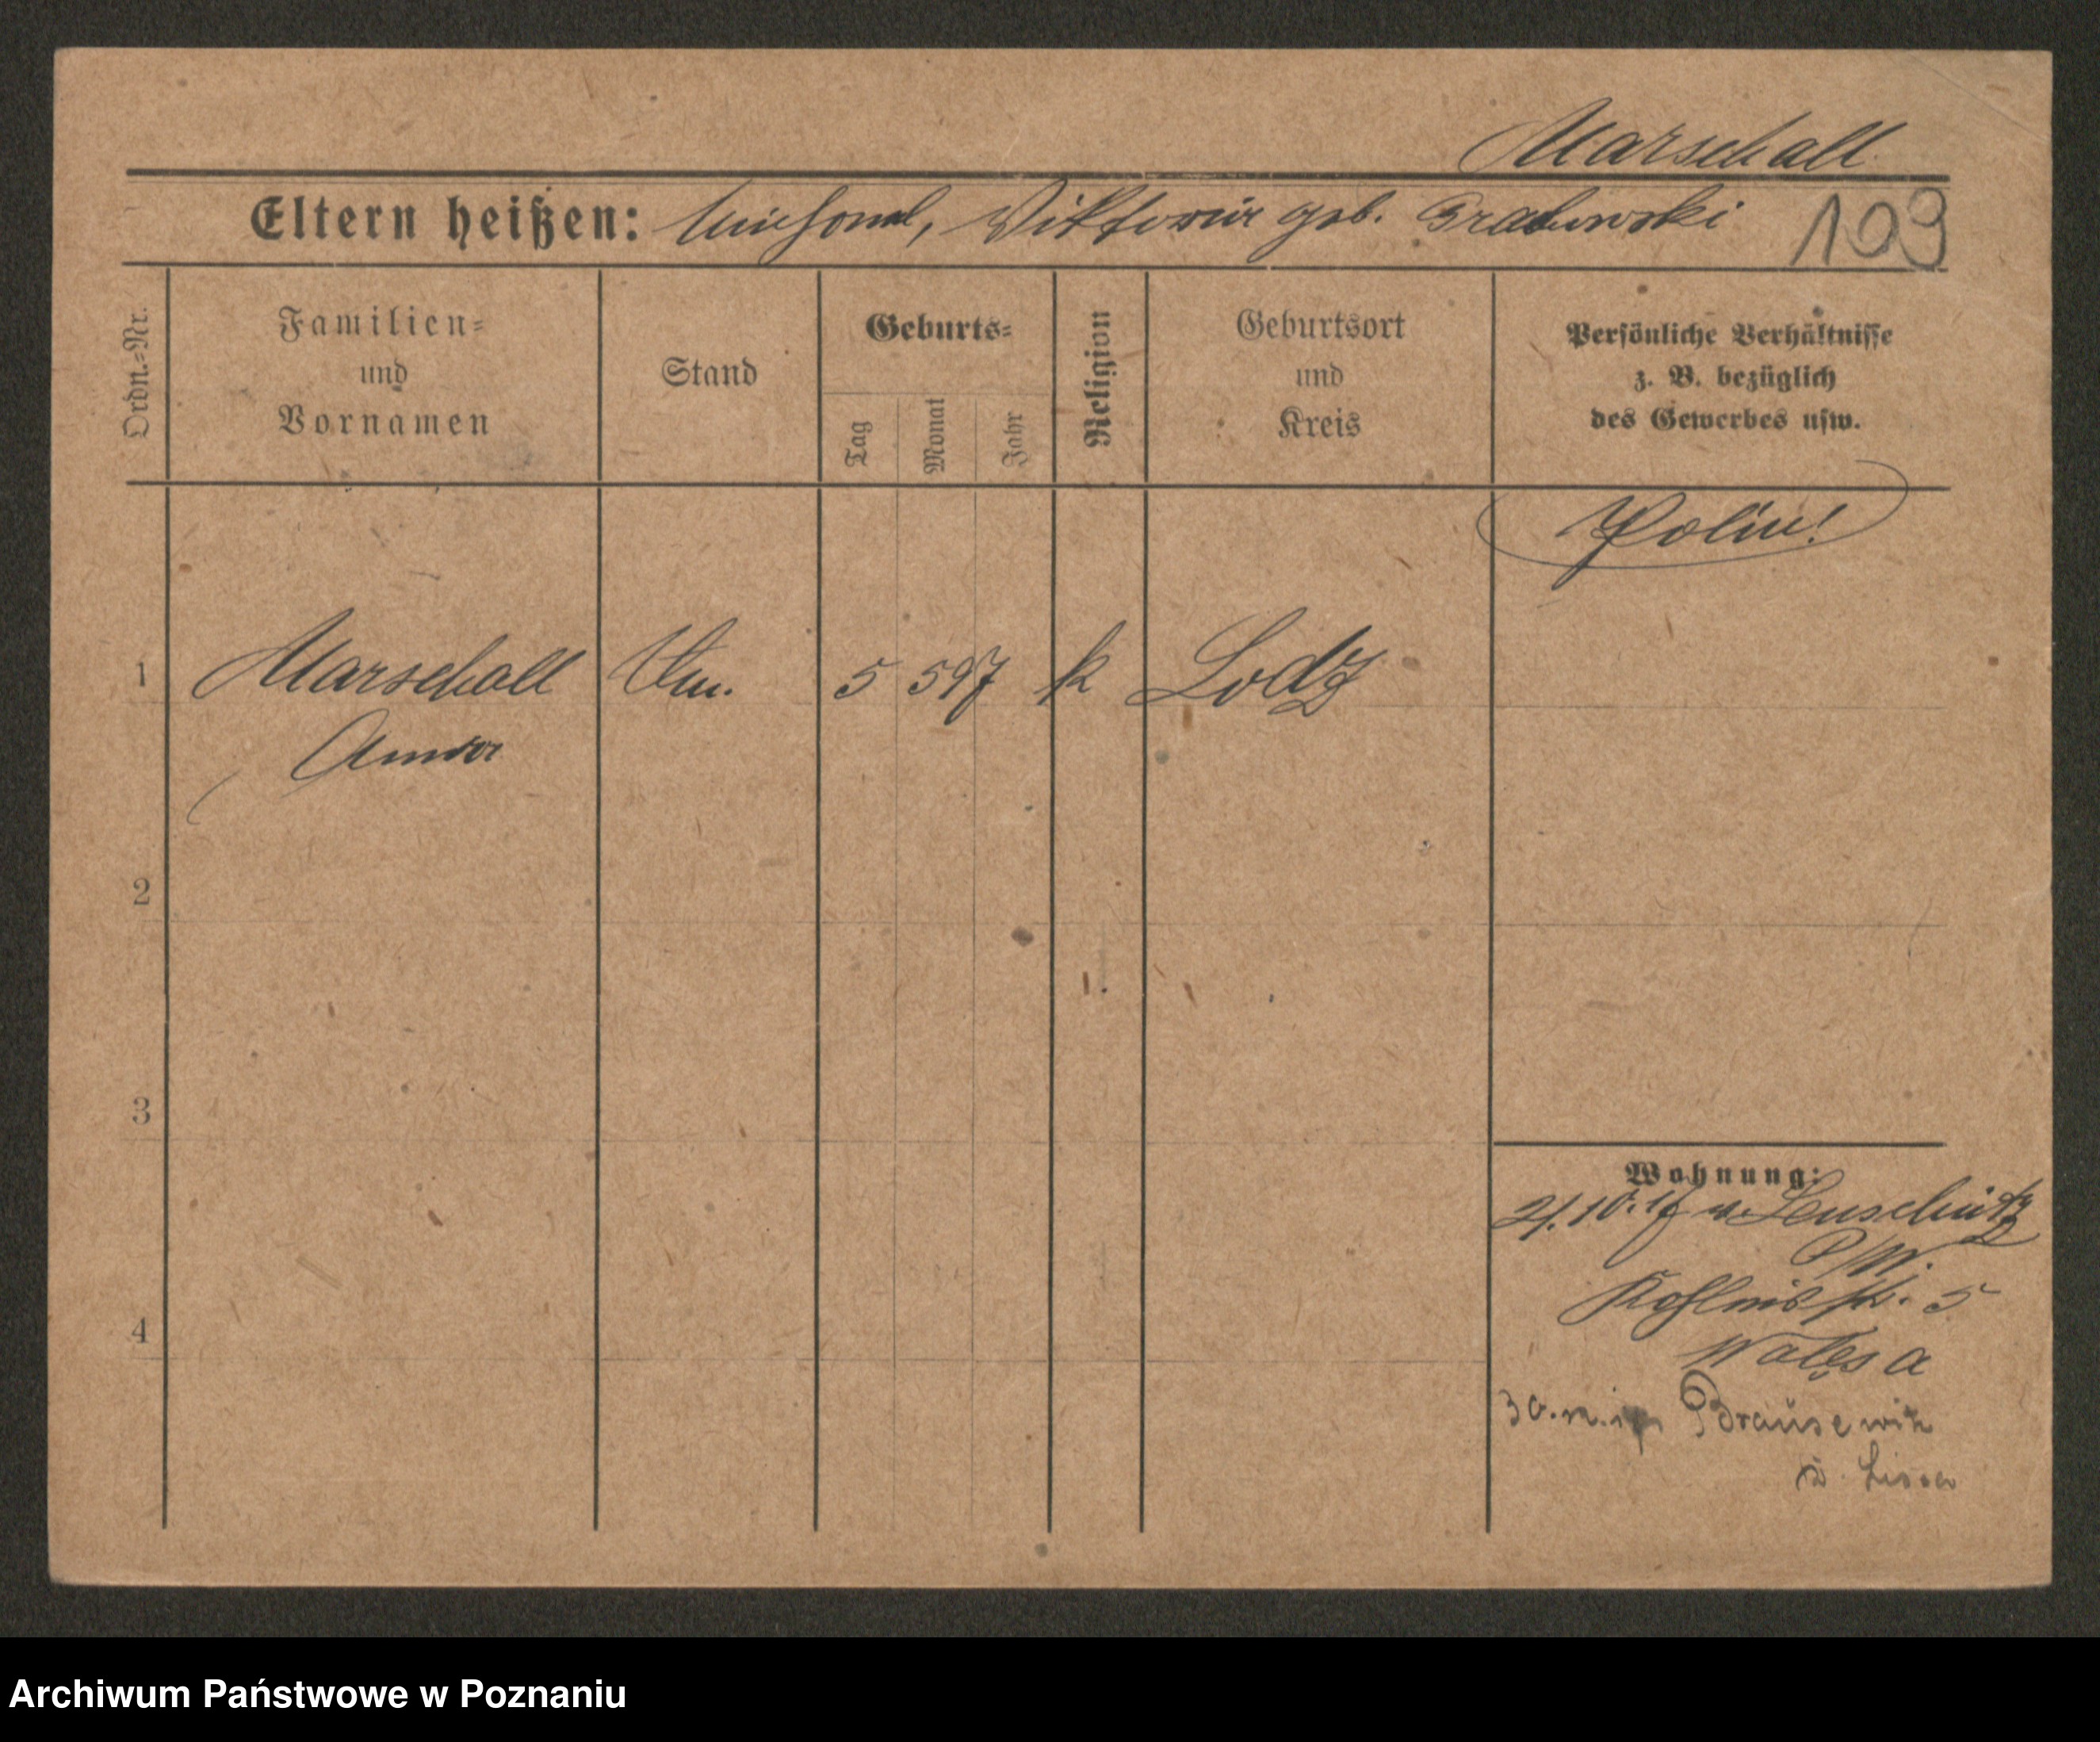 Marschall
Eltern heißen: Michael, Viktoria geb. Grabowski
109
Ordn.-Nr.
Familien-
und
Vornamen
Stand
Geburts-
Tag
Monat
Jahr
Religion
Geburtsort
und
Kreis
Persönliche Verhältnisse
z. B. bezüglich
des Gewerbes usw.
Polin!
1 Marschall 5 5 97 k Lodz
Anna
2
3
Wohnung:
v. Luschwitz
4
5
Walęsa
Brausewitz
Lissa
Archiwum Państwowe w Poznaniu